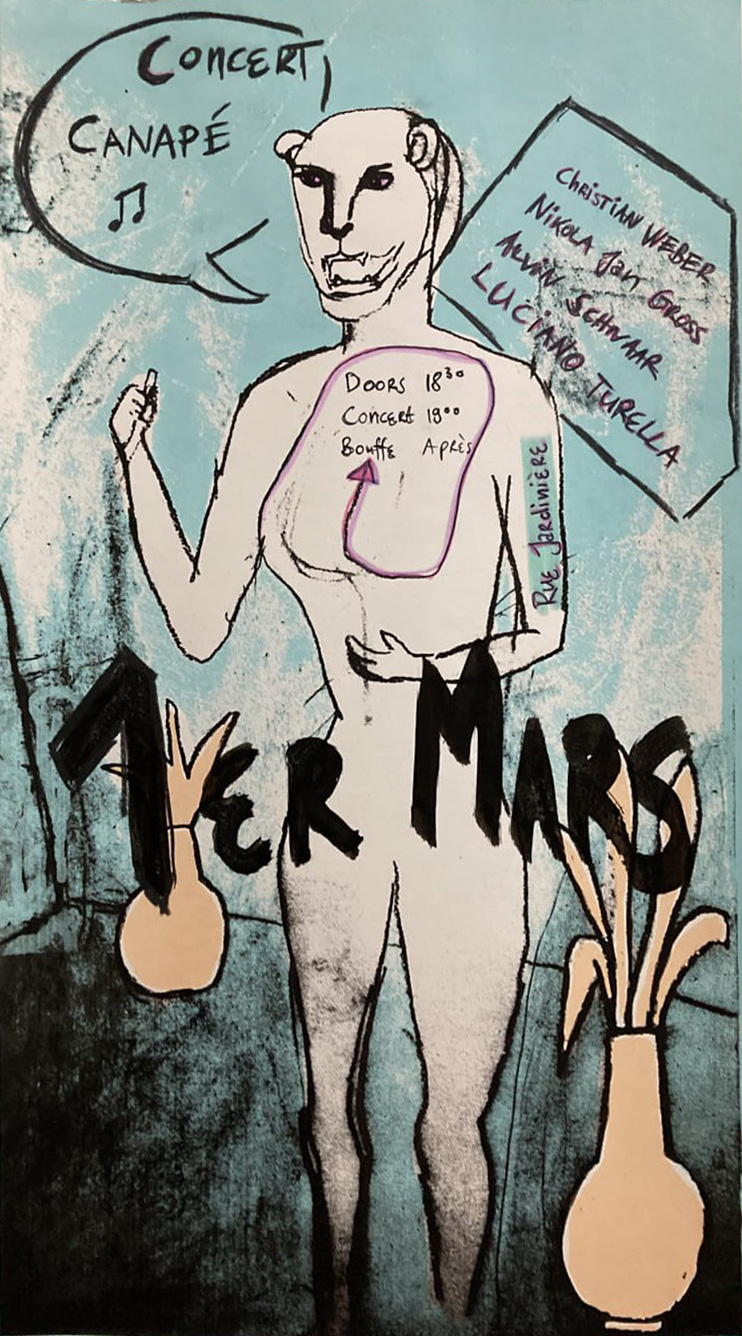 CONCERT
CANAPÉ
CHRISTIAN WEBER
NIKOLA Jan GROSS
ALVIN SCHWAAR
LUCIANO TURELLA
DOORS 18³⁰
CONCERT 19⁰⁰
BOUFFE APRÈS
RUE JARDINIÈRE
1ER MARS